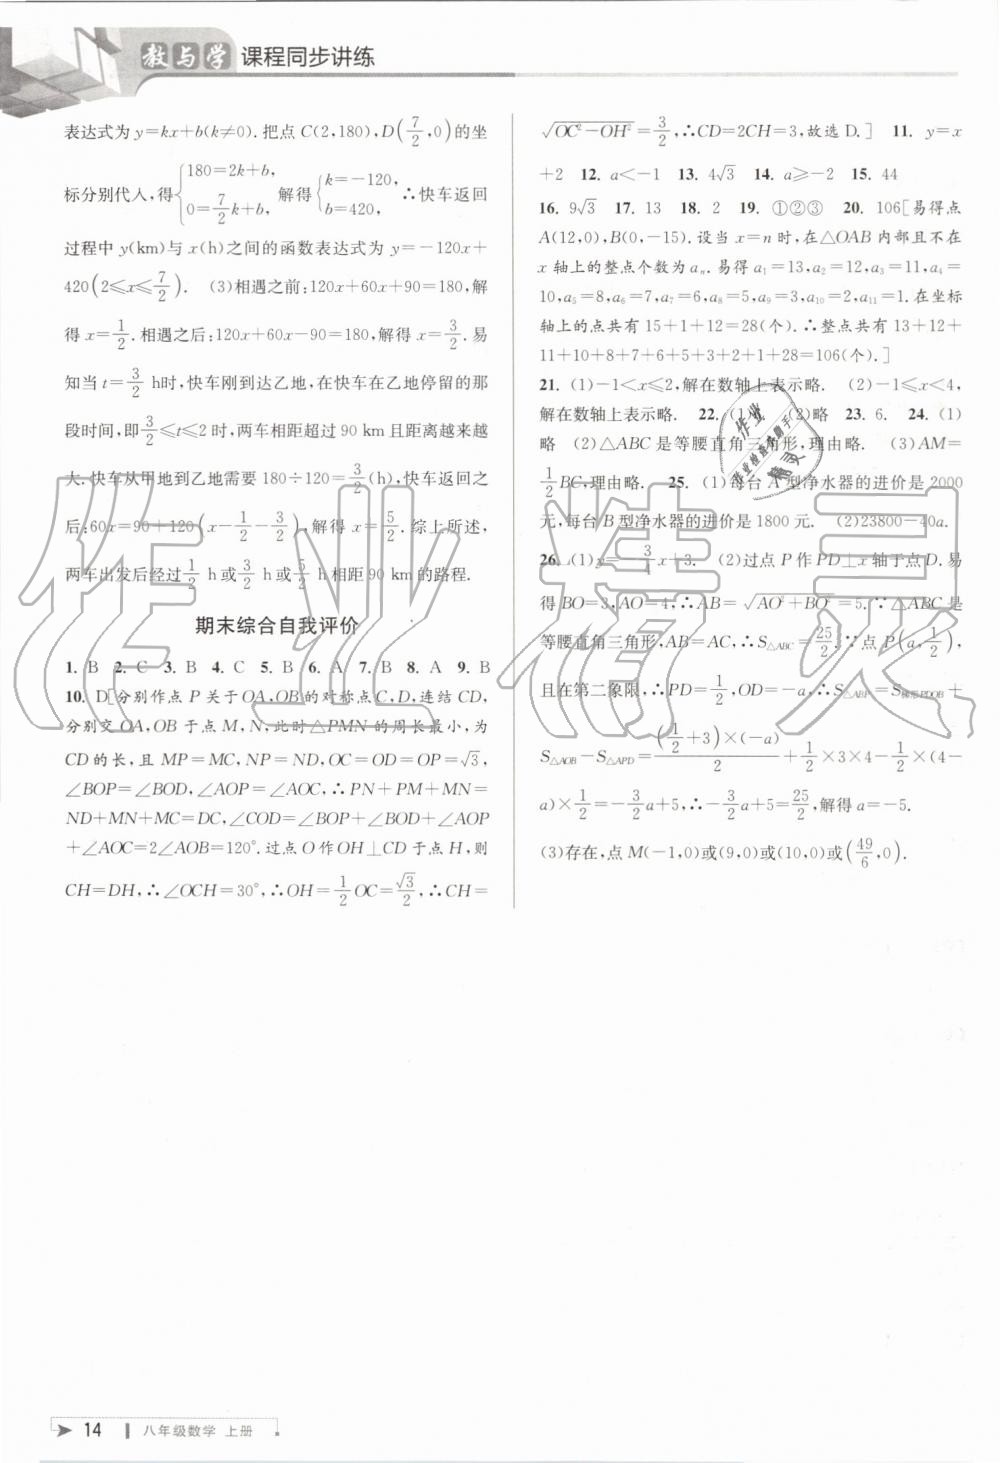 教与学 课程同步讲练
表达式为 y=kx+b(k≠0). 把点 C(2,180), D(7/2,0)的坐
标分别代入,得{180=2k+b, 0=7/2k+b, 解得{k=-120, b=420, ∴快车返回
过程中 y(km)与 x(h)之间的函数表达式为 y=-120x+
420(2≤x≤7/2). (3)相遇之前:120x+60x+90=180,解
得 x=1/2. 相遇之后:120x+60x-90=180,解得 x=3/2. 易
知当 t=3/2 h时,快车刚到达乙地,在快车在乙地停留的那
段时间,即3/2≤t≤2时,两车相距超过 90 km且距离越来越
大. 快车从甲地到乙地需要 180÷120=3/2(h),快车往返之
后:60x=90+120(x-1/2-3/2),解得 x=5/2. 综上所述,
两车出发后经过1/2 h或3/2 h或5/2 h相距 90 km的路程.
期末综合自我评价
1. B 2. C 3. B 4. C 5. B 6. A 7. B 8. A 9. B
10. D[分别作点 P 关于 OA,OB的对称点 C,D,连结 CD,
分别交 OA,OB 于点 M,N,此时△PMN 的周长最小,为
CD 的长,且 MP=MC,NP=ND,OC=OD=OP=√3,
∠BOP=∠BOD,∠AOP=∠AOC,∴PN+PM+MN=
ND+MN+MC=DC,∠COD=∠BOP+∠BOD+∠AOP
+∠AOC=2∠AOB=120°. 过点 O 作 OH⊥CD 于点 H,则
CH=DH,∴∠OCH=30°,∴OH=1/2OC=√3/2,∴CH=
√(OC²-OH²)=3/2,∴CD=2CH=3,故选 D.] 11. y=x
+2 12. a<-1 13. 4√3 14. a≥-2 15. 44
16. 9√3 17. 13 18. 2 19. ①②③ 20. 106[易得点
A(12,0),B(0,-15). 设当 x=n 时,在△OAB 内部且不在
x 轴上的整点个数为 aₙ. 易得 a₁=13,a₂=12,a₃=11,a₄=
10,a₅=8,a₆=7,a₇=6,a₈=5,a₉=3,a₁₀=2,a₁₁=1. 在坐标
轴上的点共有 15+1+12=28(个). ∴整点共有 13+12+
11+10+8+7+6+5+3+2+1+28=106(个).]
21. (1)-1<x≤2,解在数轴上表示略. (2)-1≤x<4,
解在数轴上表示略. 22. (1)略 (2)略 23. 6. 24. (1)
略 (2)△ABC 是等腰直角三角形,理由略. (3)AM=
1/2BC,理由略. 25. (1)每台 A 型净水器的进价是 2000
元,每台 B 型净水器的进价是 1800 元. (2)23800-40a.
26. (1)y=-3/4x+3. (2)过点 P 作 PD⊥x 轴于点 D. 易
得 BO=3,AO=4,∴AB=√(AO²+BO²)=5. ∵△ABC 是
等腰直角三角形,AB=AC,∴S△ABC=25/2. ∵点 P(a,1/2),
且在第二象限,∴PD=1/2,OD=-a,∴S△ABP=S梯形PDOB+
S△AOB-S△APD=(1/2+3)×(-a)/2+1/2×3×4-1/2×(4-
a)×1/2=-3/2a+5,∴-3/2a+5=25/2,解得 a=-5.
(3)存在,点 M(-1,0)或(9,0)或(10,0)或(49/6,0).
作业精灵
作业
精灵
14 八年级数学 上册